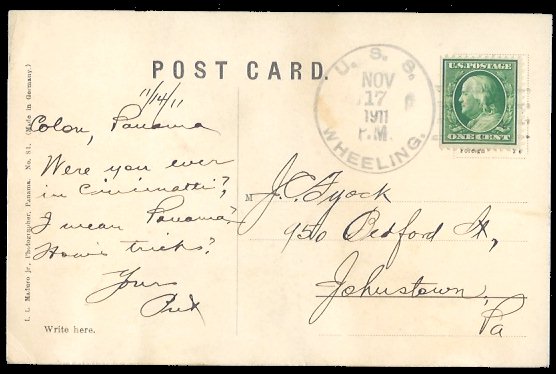 POST CARD.
U. S. S.
NOV
17
1911
P.M.
WHEELING.
U.S. POSTAGE
ONE CENT
11/14/11
Colon, Panama
Were you ever
in Cincinnatti?,
I mean Panama?
How's tricks?
Yours
Write here.
M J.C. Tyock
950 Bedford St,
Johnstown,
Pa
I. L. Maduro jr., Photographer, Panama. No. 81. (Made in Germany.)